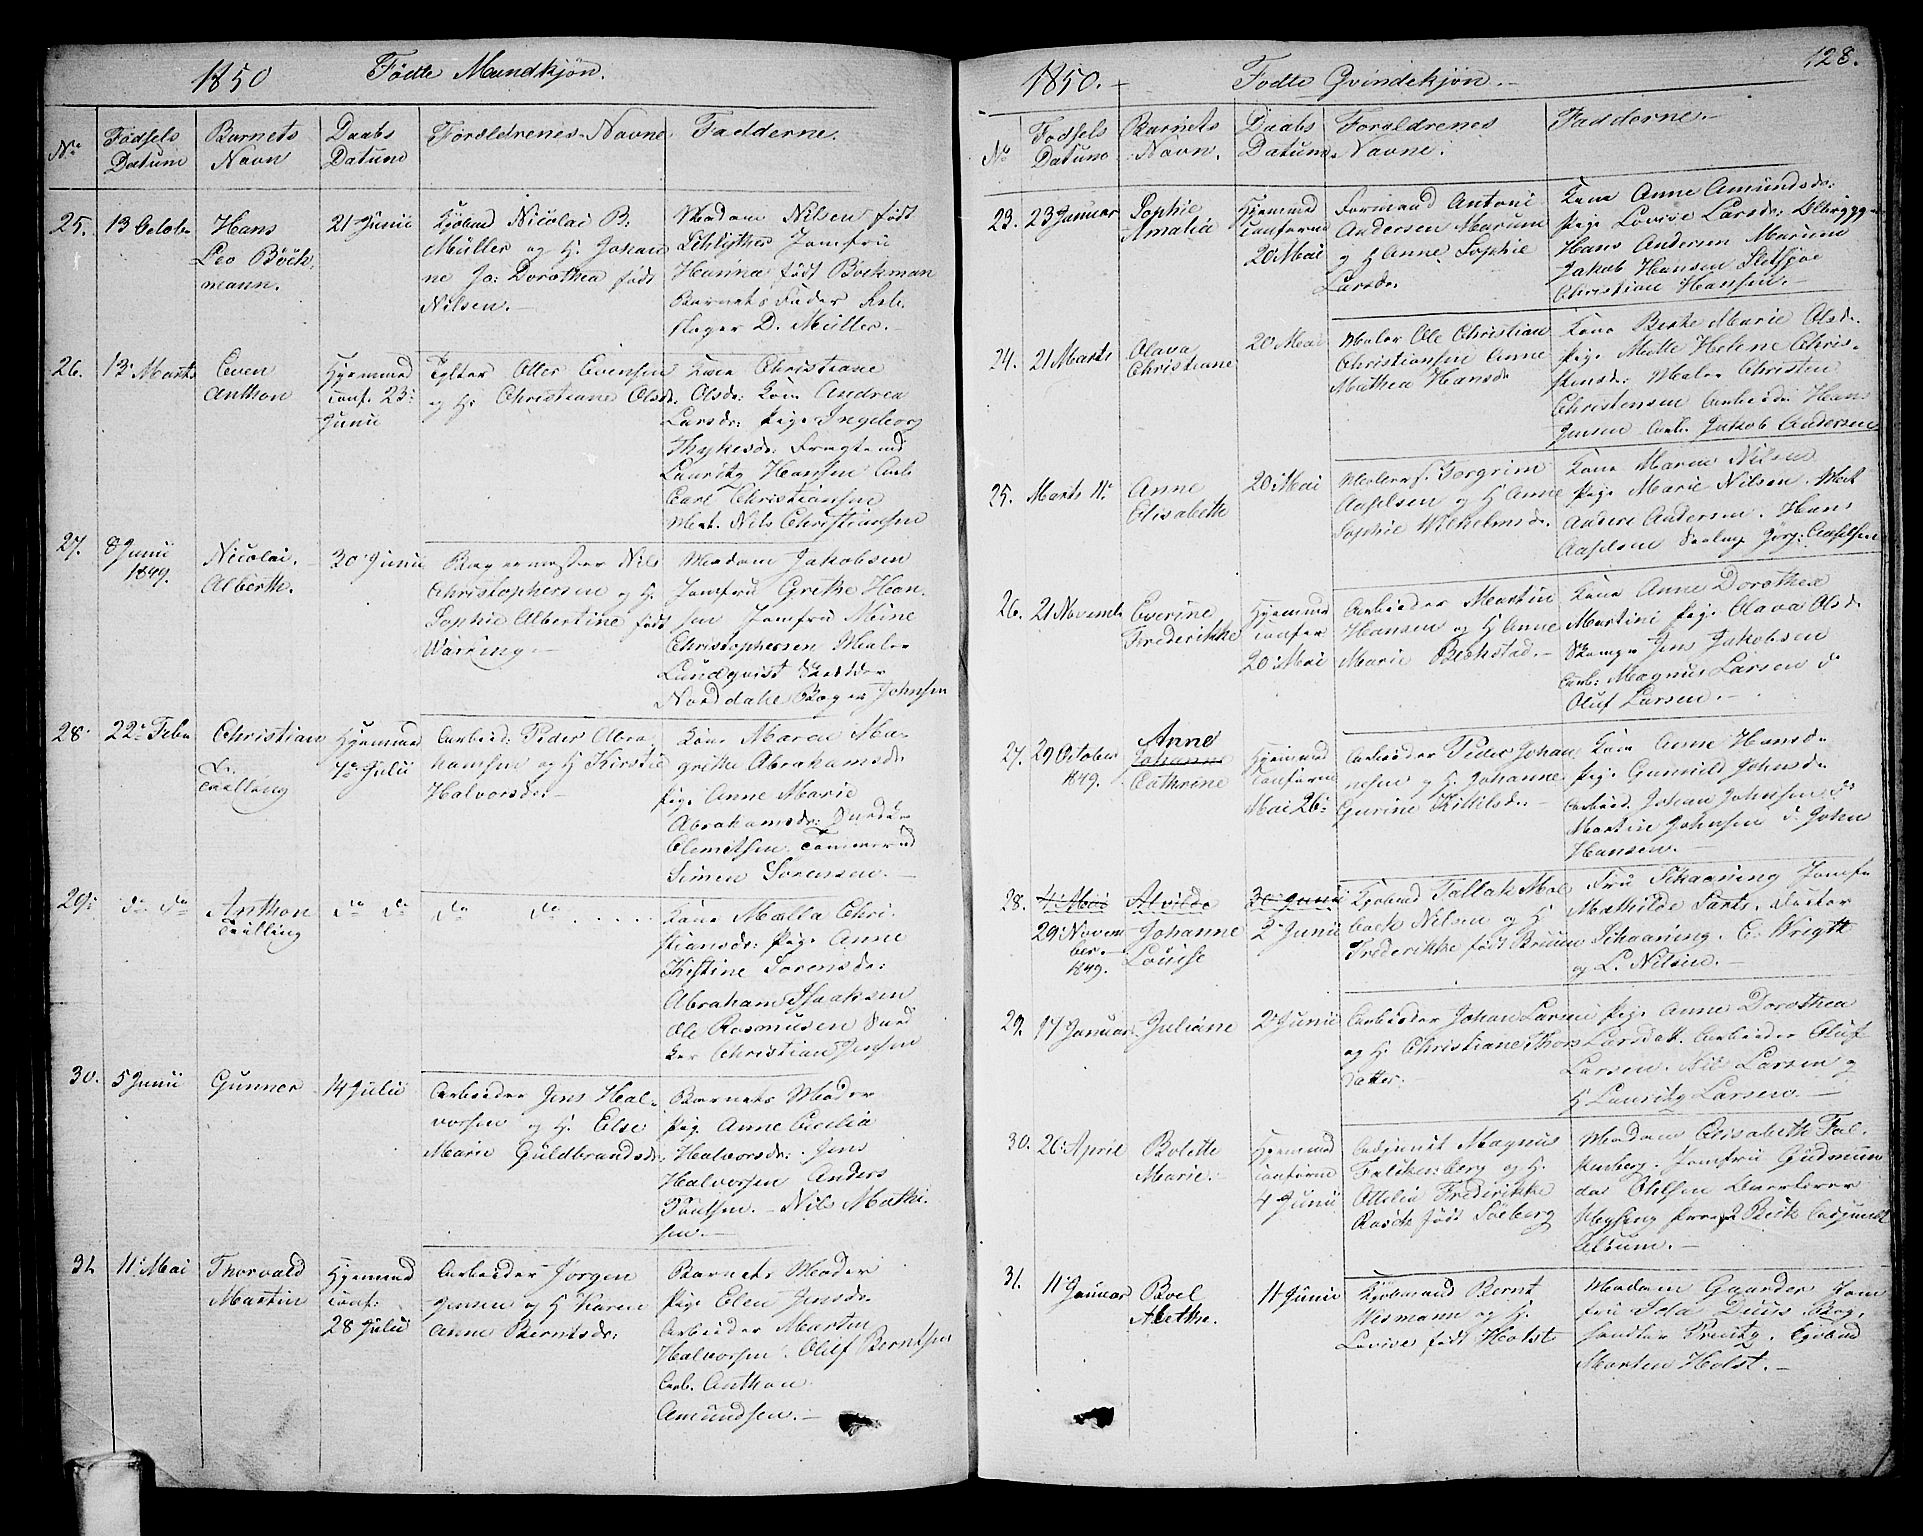 1850 Födte Mandkjön.
No Födsels Datum Barnets Navn Daabs Datum Forældrenes Navne Fadderne.
25. 13 October Hans Leo Böckmann. 21 Junii
Kjöbmd Nicolai B:
Müller og H. Johan
ne Jo: Dorothea födt
Nilsen.
Madam Nilsen födt
Jomfru
Hanna födt Böckman
Barnets Fader
D. Müller.
26. 13 Marts Even Anthon Hjemmed conf. 23: Junii
Oller Evensen
og H: Christiane Olsdr:
Kone Christiane
Olsdr: Kone Andrea
Larsdr: Pige Ingeborg
Lauritz Hansen Arb.
Carl Christiansen
Mat. Nils Christiansen
27. 8 Junii 1849. Nicolai Alberth. 30 Junii
Bagermester Nils
Christophersen og H.
Sophie Albertine födt
Warring.
Madam Jakobsen
Jomfru Grethe Han
sen Jomfru Mine
Christophersen Maler
Lundqvist
Norddahl Bager Johnsen
28. 22 Febr Christian Tvilling Hjemmed 7de Julii
Arbeid: Peder Abra
hamsen og H Kirstie
Halvorsdr:
Kone Maren Ma
grethe Abrahamsdr
Pige Anne Marie
Abrahamsdr:
Clemetsen. Tömmermd
Simen Sörensen.
29: do do Anthon Tvilling do do
do do
Kone Malla Chri
stiansdr: Pige Anne
Kistine Sörensdr:
Abraham Isaksen
Ole Rasmusen
Christian Jensen
30. 5 Junii Gunner 14 Julii
Arbeider Jens Hal
vorsen og H. Else
Marie Guldbrandsdr.
Barnets Moder
Pige Anne Cicilia
Halvorsdr: Jens
Halvorsen Anders
Nils Mathi
sen.
31. 11 Mai Thorvald Martin Hjemmed conf: 28 Julii
Arbeider Jörgen
Jensen og H Karen
Anne Berntsdr:
Barnets Moder
Pige Elen Jensdr.
Arbeider Martin
Halvorsen. Oluf Berntsen
Arb. Anthon
Amundsen.
128.
1850. Födte Qvindekjön.
No Födsels Datum Barnets Navn. Daabs Datum Forældrenes Navne. Fadderne.
23. 23 Januar Sophie Amalia Hjemmed confermd 20 Mai
Formand Antoni
Andersen Marum
og H Anne Sophie
Larsdr.
Kone Anne Amundsdr:
Pige Lovise Larsdr:
Hans Andersen Marum
Jakob Hansen
Christian Hansen.
24. 21 Marts Olava Christiane 20 Mai
Maler Ole Christian
Christiansen Anne
Mathea Hansdr
Kone Berthe Marie Olsdr.
Pige Mette Helene Chris
tensdr: Maler Christen
Christensen Arbeidr Hans
Jensen Arb. Jakob Andersen
25. Marts 11. Anne Elisabeth 20 Mai
Torgrim
Aslelsen og H Anne
Sophie Wilhelmsdr.
Kone Maren Nilsen
Pige Marie Nilsen. Mat
Anders Andersen. Hans
26. 21 Novembr Everine Frederikke Hjemmed confer 20 Mai
Arbeider Martin
Hansen og H Anne
Marie Bechstad.
Kone Anne Dorothea
Martini Pige Olava Olsdr
Jens Jakobsen
Arb: Magnus Larsen do
Oluf Larsen.
27. 29 October 1849. Anne Johanne Cathrine Hjemmed confermd Mai 26:
Arbeider Peder Johan
nesen og H. Johanne
Gurine Kittilsdr.
Kone Anne Hansdr
Pige Gunnild Johnsdr
Arbeid. Johan Johnsen do
Martin Johnsen d. Johan
Hansen.
28. 4 Mai 29 November 1849. Alvilde Johanne Louise 30 Junii 2 Junii
Kjöbmd Tallak Mol
bech Nilsen og H
Frederikke födt Bruun
Fru Schaaning Jomfr
Mathilde Doctor
Schaaning. C. Wrigth
og L. Nilsen.
29. 17 Januar Juliane 2 Junii
Arbeider Johan Larsen
og H. Christiane Thors
datter.
Pige Anne Dorothea
Larsdatt. Arbeider Oluf
Larsen. Larsen og
H Lauritz Larsen.
30. 26 April Bolette Marie. Hjemmed confermd 4 Junii
Adjunct Magnus
Falkenberg og H.
Ottilia Frederikke
Rasch födt Söeberg
Madam Elisabeth Fal
kenberg. Jomfru Gudmun
da Ohlsen Overlærer
31. 11 Januar Boel Alethe. 11 Junii
Kjöbmand Bernt
Wismann og H:
Lovise födt Holst
Madam Gaarder Jom
fru Ida Duus Bog
handler Preutz. Kjöbmd
Morten Holst.